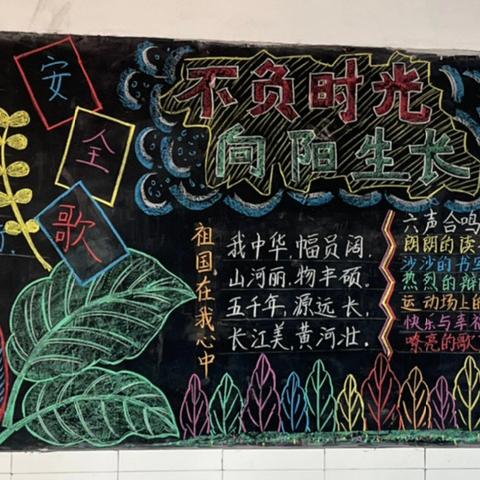 安
全
歌
不负时光
向阳生长
祖国在我心中
我中华,幅员阔,
山河丽,物丰硕,
五千年,源远长,
长江美,黄河壮.
六声合鸣
朗朗的读
沙沙的书写
热烈的辩
运动场上的
快乐与幸福
嘹亮的歌